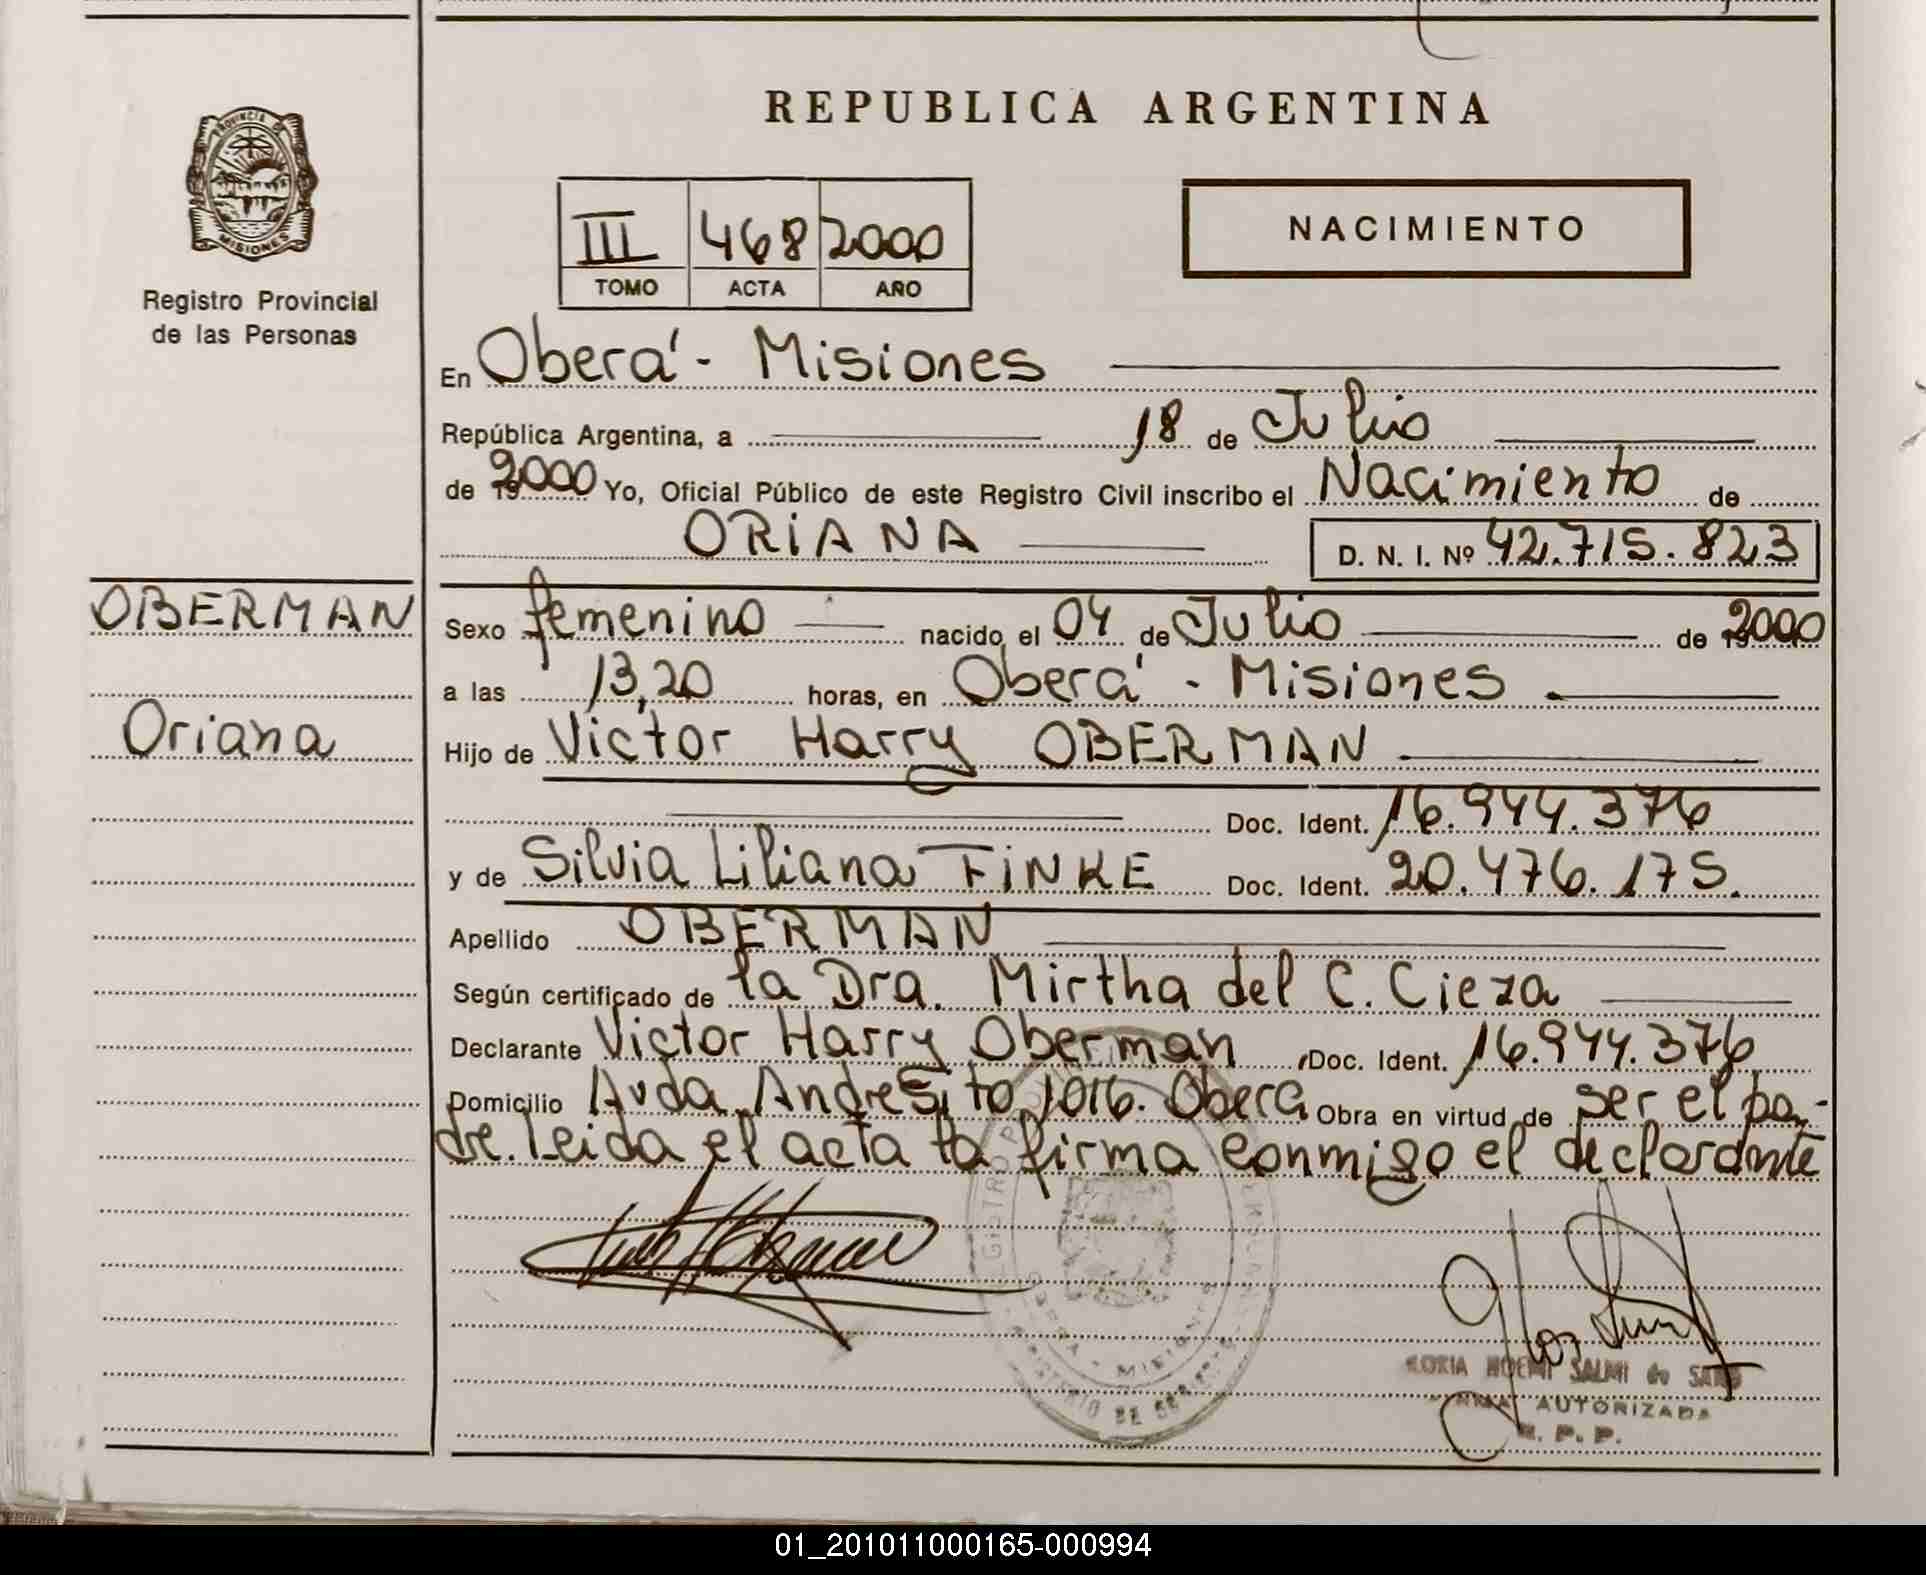 REPUBLICA ARGENTINA
PROVINCIA DE
MISIONES
Registro Provincial
de las Personas
III 468 2000
TOMO ACTA AÑO
NACIMIENTO
En Oberá - Misiones
República Argentina, a 18 de Julio
de 2000 Yo, Oficial Público de este Registro Civil inscribo el Nacimiento de
ORIANA D. N. I. Nº 42.715.823
OBERMAN
Oriana
Sexo femenino nacido el 04 de Julio de 2000
a las 13,20 horas, en Oberá - Misiones
Hijo de Victor Harry OBERMAN
Doc. Ident. 16.944.376
y de Silvia Liliana FINKE Doc. Ident. 20.476.175.
Apellido OBERMAN
Según certificado de la Dra. Mirtha del C. Cieza
Declarante Victor Harry Oberman Doc. Ident. 16.944.376
Domicilio Avda. Andresito 1016. Oberá Obra en virtud de ser el pa-
dre. Leida el acta la firma conmigo el declarante
NOEMI SALMI de
AUTORIZADA
R. P. P.
MISIONES
01_201011000165-000994